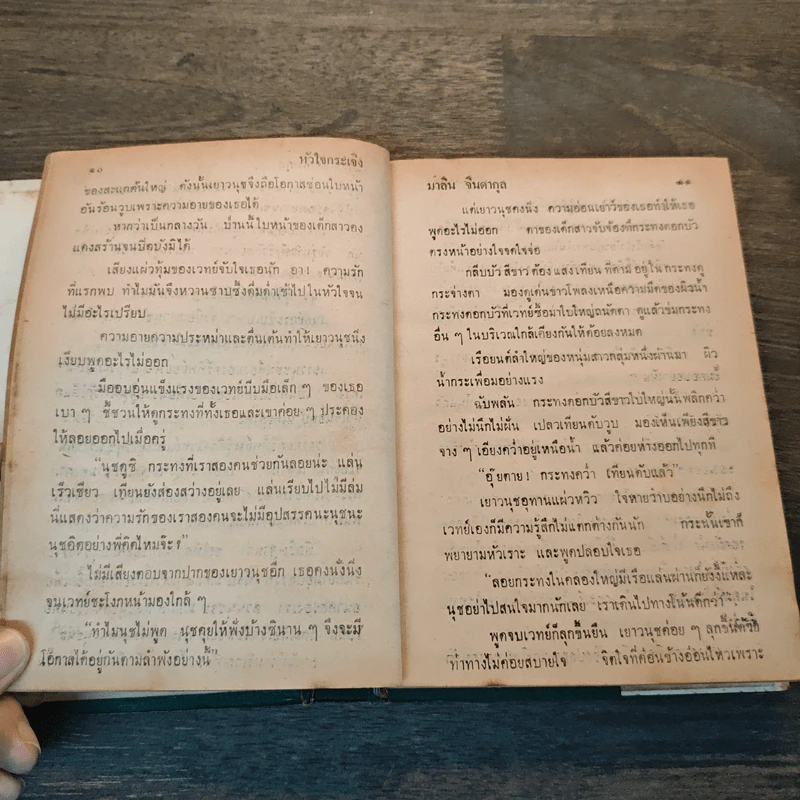 ๑๐
หัวใจกระเจิง
ของสะแกต้นใหญ่ ดังนั้นเยาวนุชจึงถือโอกาสซ่อนใบหน้า
อันร้อนวูบเพราะความอายของเธอได้
หากว่าเป็นกลางวัน ป่านนี้ใบหน้าของเด็กสาวคง
แดงสร้านจนปิดบังมิได้
เสียงแผ่วทุ้มของเวทย์จับใจเธอนัก อา! ความรัก
ที่แรกพบ ทำไมมันจึงหวานซาบซึ้งดื่มด่ำเข้าไปในหัวใจจน
ไม่มีอะไรเปรียบ
ความอายความประหม่าและตื่นเต้นทำให้เยาวนุชนิ่ง
เงียบพูดอะไรไม่ออก
มืออบอุ่นแข็งแรงของเวทย์บีบมือเล็ก ๆ ของเธอ
เบา ๆ ชี้ชวนให้ดูกระทงที่ทั้งเธอและเขาค่อย ๆ ประคอง
ให้ลอยออกไปเมื่อครู่
“นุชดูซิ กระทงที่เราสองคนช่วยกันลอยน่ะ แล่น
เร็วเชียว เทียนยังส่องสว่างอยู่เลย แล่นเรียบไปไม่มีล่ม
นี่แสดงว่าความรักของเราสองคนจะไม่มีอุปสรรคนะนุชนะ
นุชคิดอย่างพี่คิดไหมจ๊ะ?”
ไม่มีเสียงตอบจากปากของเยาวนุชอีก เธอคงนั่งนิ่ง
จนเวทย์ชะโงกหน้ามองใกล้ ๆ
“ทำไมนุชไม่พูด นุชคุยให้พี่ฟังบ้างซินาน ๆ จึงจะมี
โอกาสได้อยู่กันตามลำพังอย่างนี้”
มาลิน จินดากุล
๑๑
แต่เยาวนุชคงนิ่ง ความอ่อนเยาว์ของเธอทำให้เธอ
พูดอะไรไม่ออก ตาของเด็กสาวจับจ้องที่กระทงดอกบัว
ตรงหน้าอย่างใจจดใจจ่อ
กลีบบัวสีขาวต้องแสงเทียนที่ตามอยู่ในกระทงดู
กระจ่างตา มองดูเด่นขาวโพลงเหนือความมืดของผิวน้ำ
กระทงดอกบัวที่เวทย์ซื้อมาใบใหญ่ถนัดตา ดูแล้วข่มกระทง
อื่น ๆ ในบริเวณใกล้เคียงกันให้ด้อยลงหมด
เรือยนต์ลำใหญ่ของหนุ่มสาวกลุ่มหนึ่งผ่านมา ผิว
น้ำกระเพื่อมอย่างแรง
ฉับพลัน กระทงดอกบัวสีขาวใบใหญ่นั้นพลิกคว่ำ
อย่างไม่นึกไม่ฝัน เปลวเทียนดับวูบ มองเห็นเพียงสีขาว
จาง ๆ เอียงคว่ำอยู่เหนือน้ำ แล้วค่อยห่างออกไปทุกที
“อุ๊ยตาย! กระทงคว่ำ เทียนดับแล้ว”
เยาวนุชอุทานแผ่วหวิว ใจหายวาบอย่างนึกไม่ถึง
เวทย์เองก็มีความรู้สึกไม่แตกต่างกันนัก กระนั้นเขาก็
พยายามหัวเราะ และพูดปลอบใจเธอ
“ลอยกระทงในคลองใหญ่มีเรือแล่นผ่านก็ยังงี้แหละ
นุชอย่าไปสนใจมากนักเลย เราเดินไปทางโน้นดีกว่า”
พูดจบเวทย์ก็ลุกขึ้นยืน เยาวนุชค่อย ๆ ลุกขึ้นด้วย
ท่าทางไม่ค่อยสบายใจ จิตใจที่ค่อนข้างอ่อนไหวเพราะ